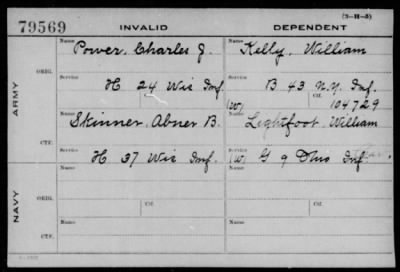 (3-H-5)
79569 INVALID DEPENDENT
Name Power, Charles J. Name Kelly, William
ORIG. Service H 24 Wis Inf. Service B 43 N.Y. Inf.
ARMY (W) Ctf. 104729
Name Skinner, Abner B. Name Lightfoot, William
CTF. Service H 37 Wis Inf. Service (W) G 9 Ohio Inf.
Name Name
ORIG. Service Ctf. Service Ctf.
NAVY
Name Name
CTF. Service Service